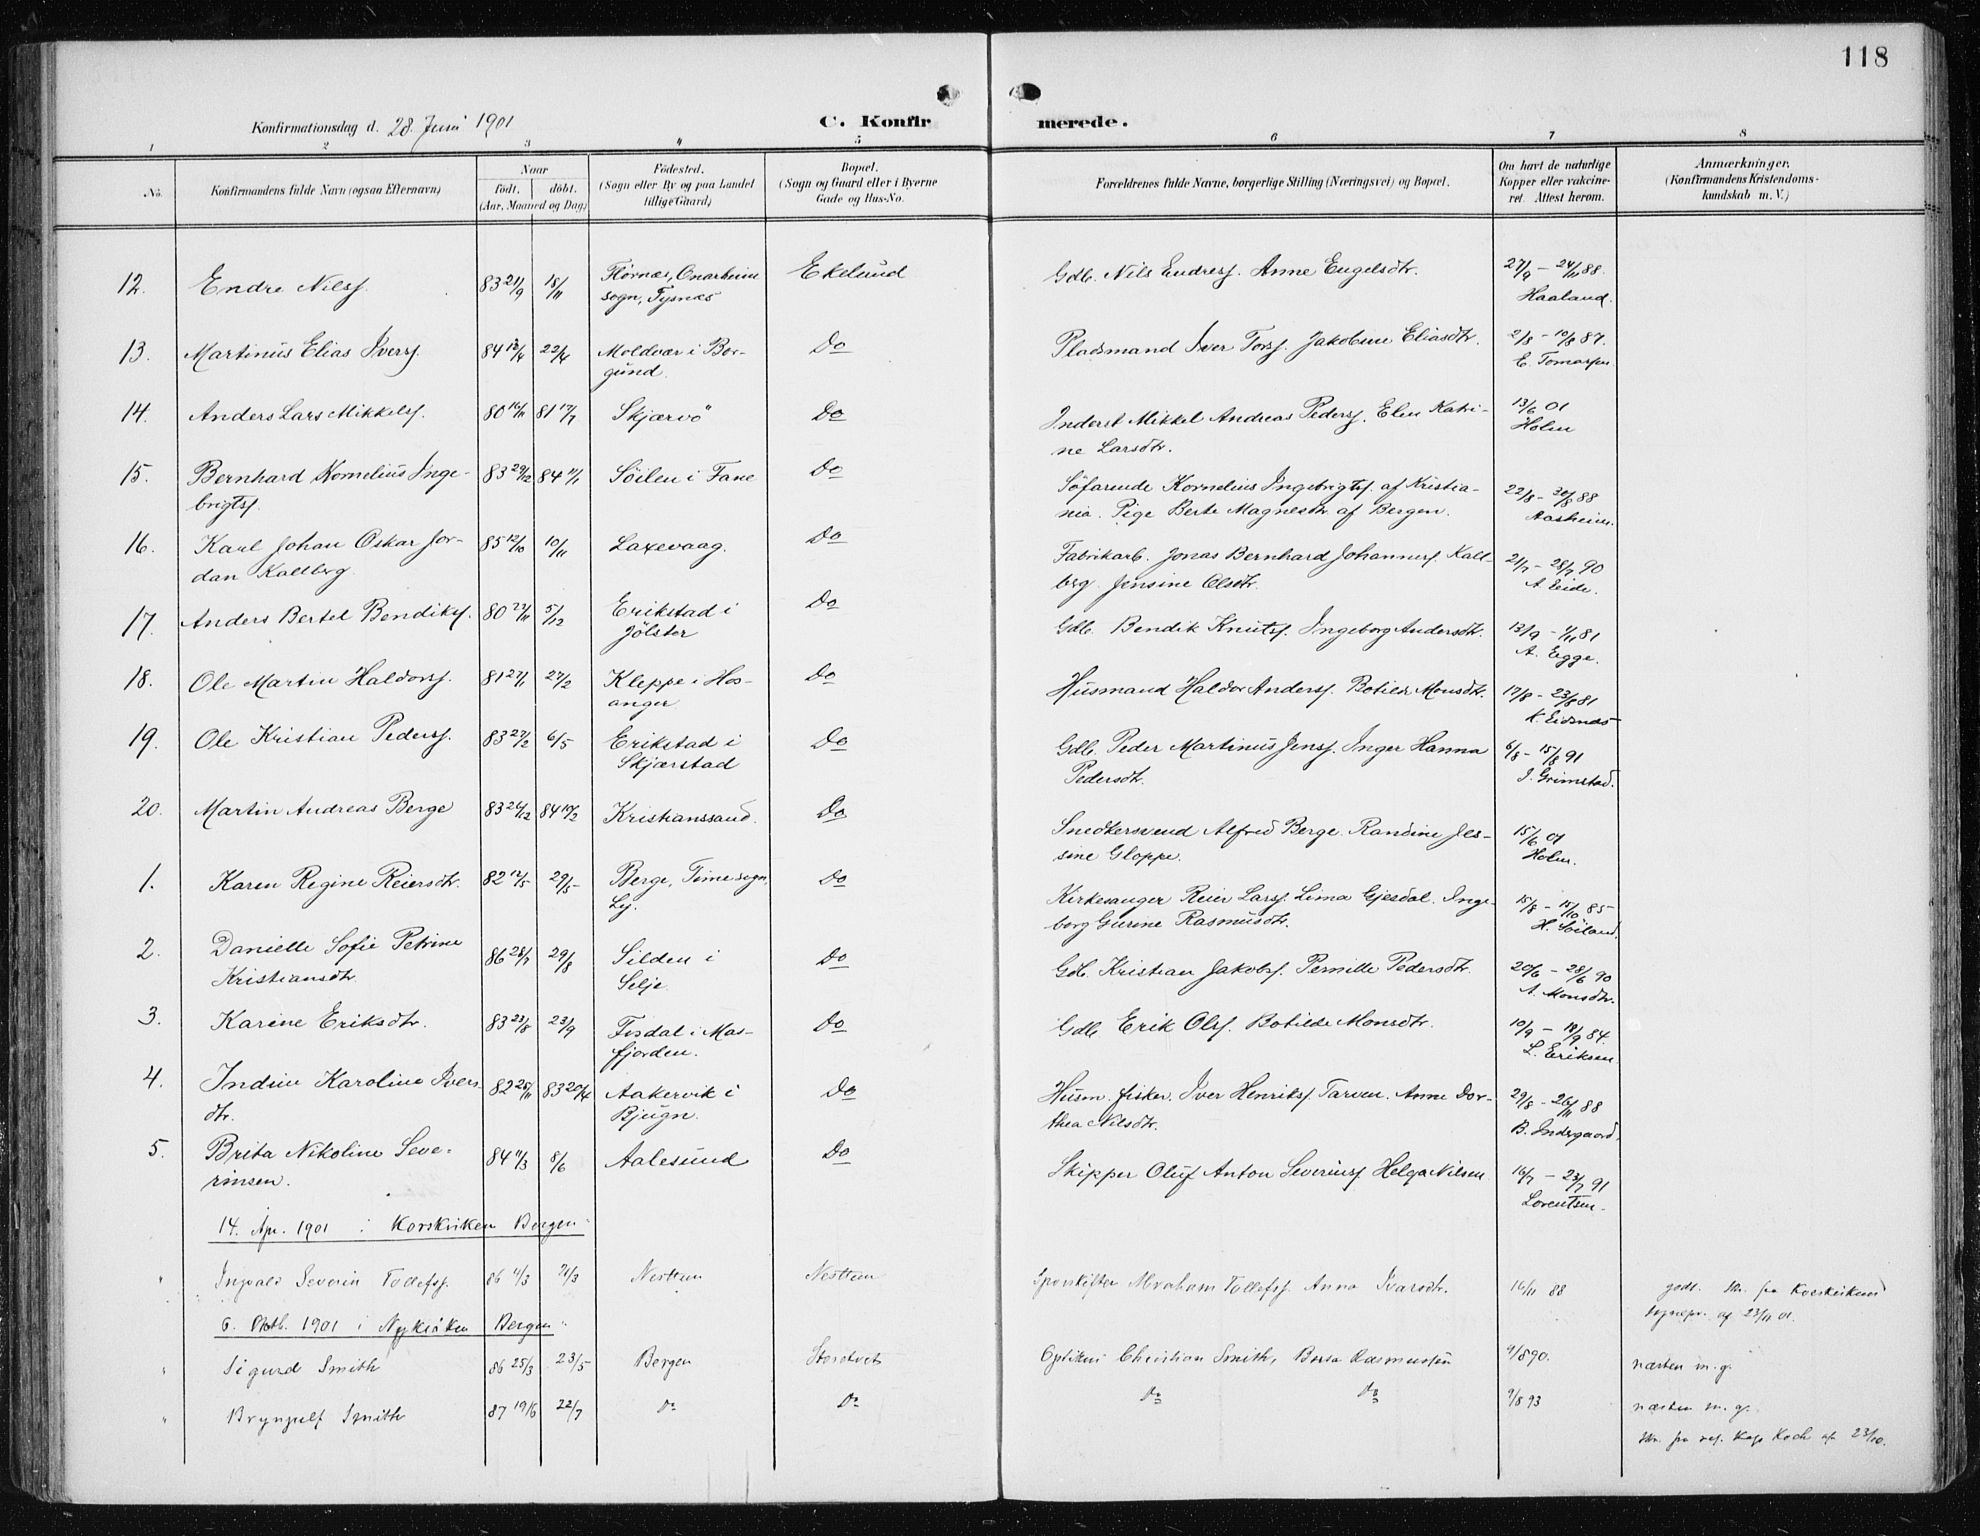 118
Konfirmationsdag d. 28. Juni 1901
C. Konfirmerede.
1 2 3 4 5 6 7 8
No. Konfirmandens fulde Navn (ogsaa Efternavn) Naar født. døbt. (Aar, Maaned og Dag) Fødested. (Sogn eller By og paa Landet tillige Gaard) Bopæl. (Sogn og Gaard eller i Byerne Gade og Hus-No. Forældrenes fulde Navne, borgerlige Stilling (Næringsvei) og Bopæl. Om havt de naturlige Kopper eller vakcineret. Attest herom. Anmærkninger. (Konfirmandens Kristendomskundskab m. V.)
12. Endre Nilss. 83 21/9 18/11 Flørnæs, Onarheim Ekelund Gdb. Nils Endress. Anne Engelsdtr. 27/9 - 24/11 88.
sogn, Tysnæs Haaland.
13. Martinus Elias Ivers. 84 13/4 22/4 Moldvær i Bor- Do Pladsmand Iver Tors. Jakobine Eliasdtr. 2/8 - 10/8 87.
gund. E. Tomassen
14. Anders Lars Mikkels. 80 16/11 81 17/7 Skjærvö Do Inderst Mikkel Andreas Peders. Elen Katri- 13/6 01
ne Larsdtr. Holm
15. Bernhard Kornelius Inge- 83 29/12 84 11/1 Söilen i Fane Do Söfarende Kornelius Ingebrigts. af Kristia- 22/8 - 30/8 88
brigts. nia. Pige Berte Magnesdtr. af Bergen. Aasheim.
16. Karl Johan Oskar Jor- 85 12/10 10/11 Laxevaag. Do Fabrikarb. Jonas Bernhard Johanness. Kall- 21/7 - 28/7 90
dan Kallberg berg. Jensine Olsdtr. A. Eide.
17. Anders Bertel Bendiks. 80 27/11 5/12 Erikstad i Do Gdb. Bendik Knuts. Ingeborg Andersdtr. 13/9 - 1/11 81
Jölster A. Egge.
18. Ole Martin Haldors. 81 27/1 27/2 Kleppe i Hos- Do Husmand Haldor Anders. Botilde Monsdtr. 17/8 - 23/8 81
anger. K. Eidsnæs
19. Ole Kristian Peders. 83 27/2 6/5 Erikstad i Do Gdb. Peder Martinus Jens. Inger Hanna 6/8 - 15/8 91
Skjærstad Pedersdtr. J. Grimstad.
20. Martin Andreas Berge 83 26/12 84 10/2 Kristianssand. Do Snedkersvend Alfred Berge. Randine Jes- 15/6 01
sine Gloppe. Holm.
1. Karen Regine Reiersdtr. 82 12/5 29/5 Berge, Time sogn, Do Kirkesanger Reier Lars. Lima Gjesdal. Inge- 15/8 - 15/10 85
Ly. borg Gurine Rasmusdtr. H. Söiland.
2. Danielle Sofie Petrine 86 28/7 29/8 Silden i Do Gdb. Kristian Jakobs. Pernille Pedersdtr. 20/6 - 28/6 90
Kristiansdtr Selje. A. Monsdtr.
3. Karine Eriksdtr. 83 23/8 23/9 Fisdal i Mas- Do Gdb. Erik Ols. Botilde Monsdtr. 10/9 - 18/9 84.
fjorden. L. Eriksen
4. Indine Karoline Ivers- 82 25/11 83 20/4 Aakervik i Do Husm. fisker. Iver Henriks. Tarven. Anne Dor- 29/8 - 26/11 88
dtr. Bjugn. thea Nilsdtr. B. Indergaard.
5. Brita Nikoline Seve- 84 11/3 8/6 Aalesund Do Skipper Oluf Anton Severins. Helga Nilsen 16/7 - 23/7 91
rinsen. Lorentsen.
14. Apr. 1901 i Korskirken Bergen
" Ingvald Severin Tollefs. 86 11/3 21/3 Nesttun Nesttun Sporskifter Abraham Tollefs. Anna Ivarsdtr. 16/11 88 godt. Skr. fra Korskirkens
sognepr. af 23/4 01.
6. Oktb. 1901 i Nykirken Bergen
" Sigurd Smith 86 25/3 23/5 Bergen Storetvet Optikus Christian Smith, Berta Rasmussen 9/8 90. næsten m. g.
" Brynjulf Smith 87 19/6 22/7 Do Do Do Do 9/8 93 næsten m. g.
Skr. fra res. Kap. Koch af 23/10.